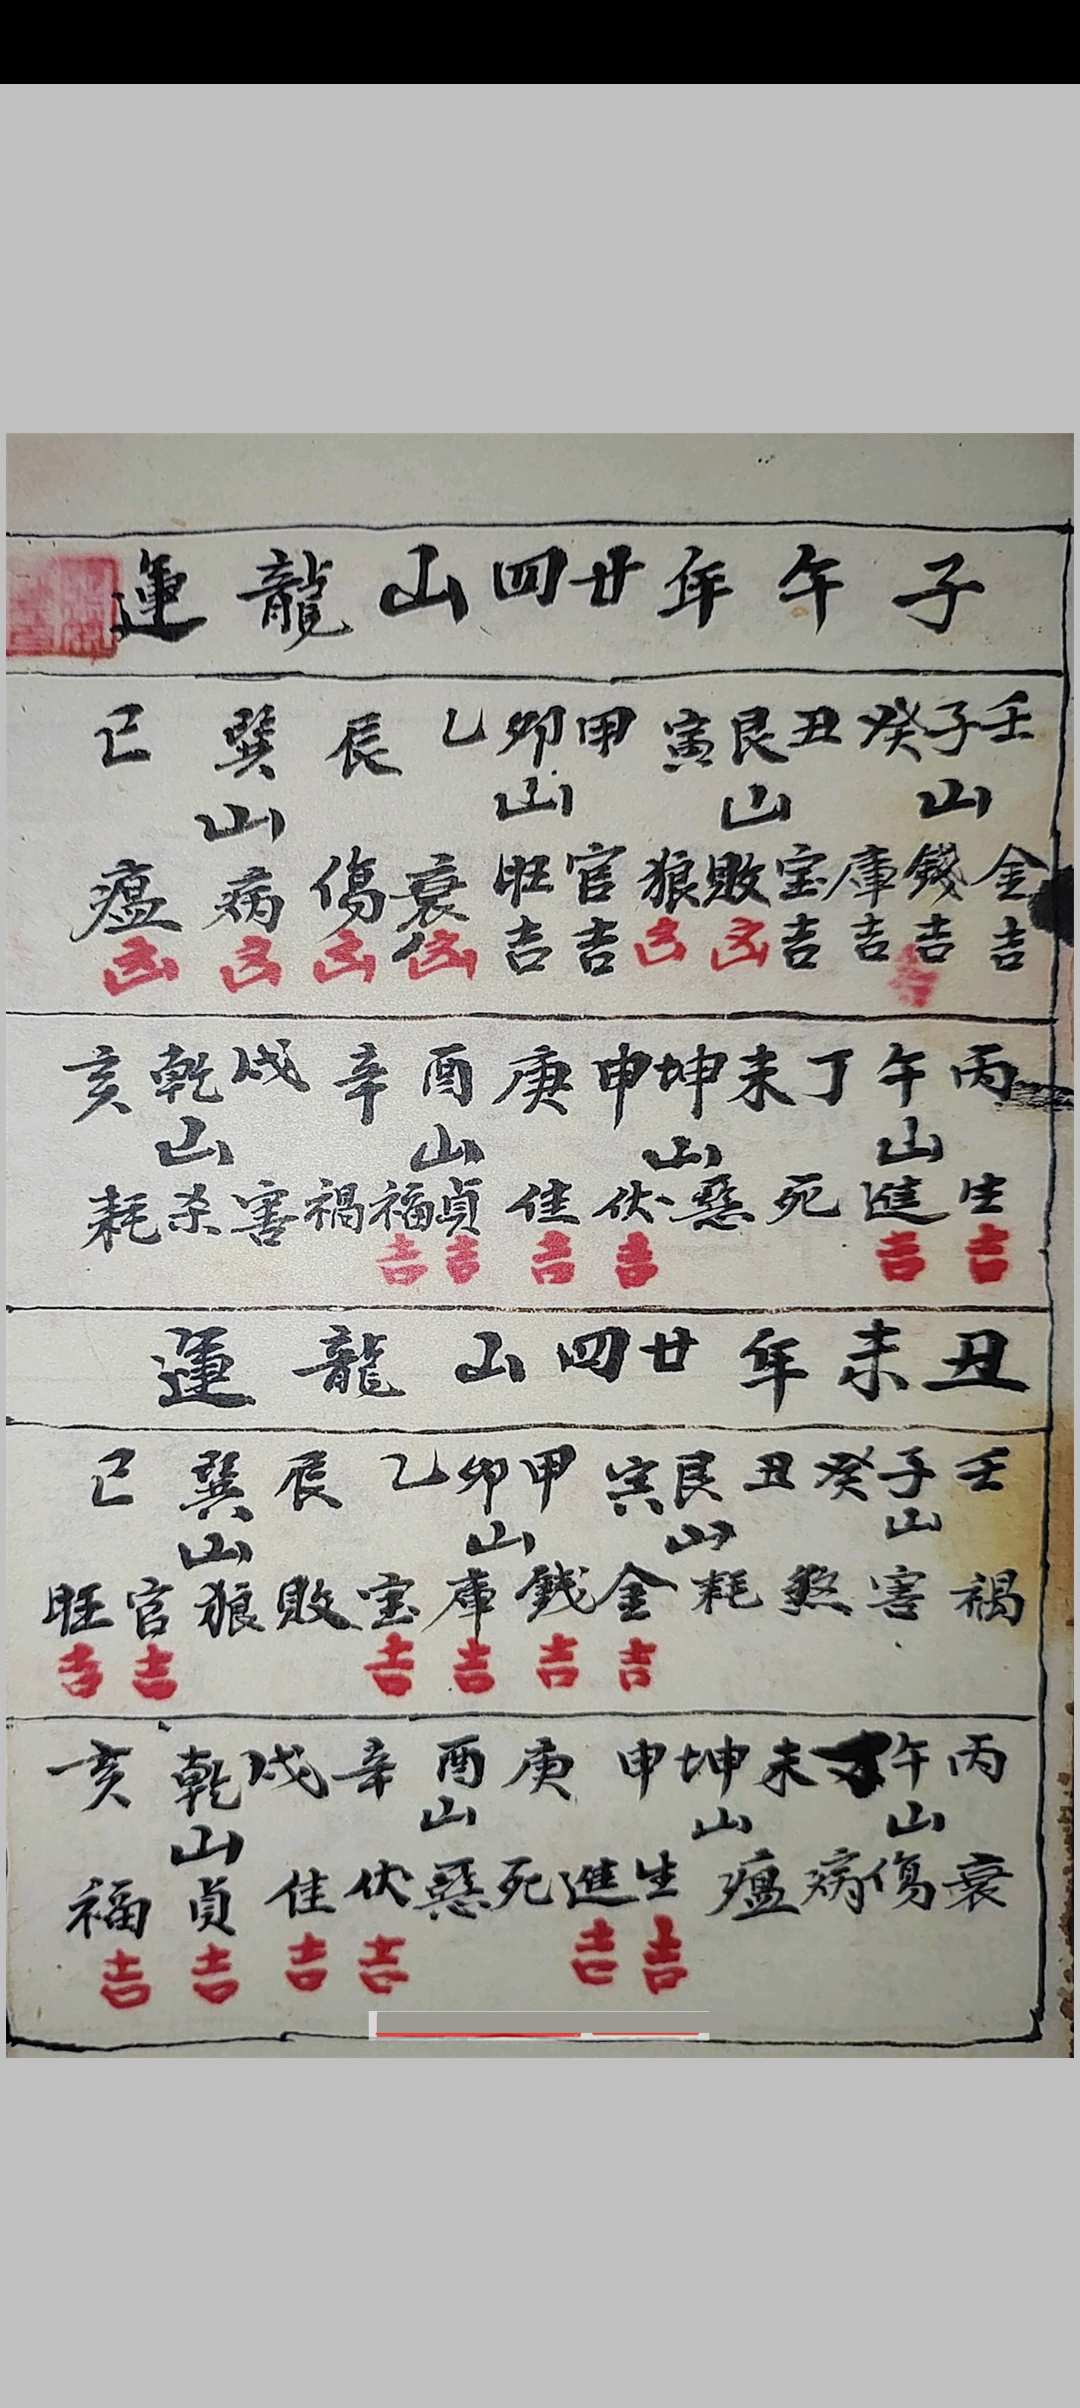 子午年廿四山龍運
壬子癸丑艮寅甲卯乙辰巽巳
山山山山
金錢庫宝敗狼官旺衰傷病瘟
吉吉吉吉凶凶吉吉凶凶凶凶
吉
丙午丁未坤申庚酉辛戌乾亥
山山山山
生進死惡伏佳貞福禍害杀耗
吉吉吉吉吉吉
丑未年廿四山龍運
壬子癸丑艮寅甲卯乙辰巽巳
山山山山
禍害煞耗金錢庫宝敗狼官旺
吉吉吉吉吉吉
丙午丁未坤申庚酉辛戌乾亥
山山山山
衰傷病瘟生進死惡伏佳貞福
吉吉吉吉吉吉